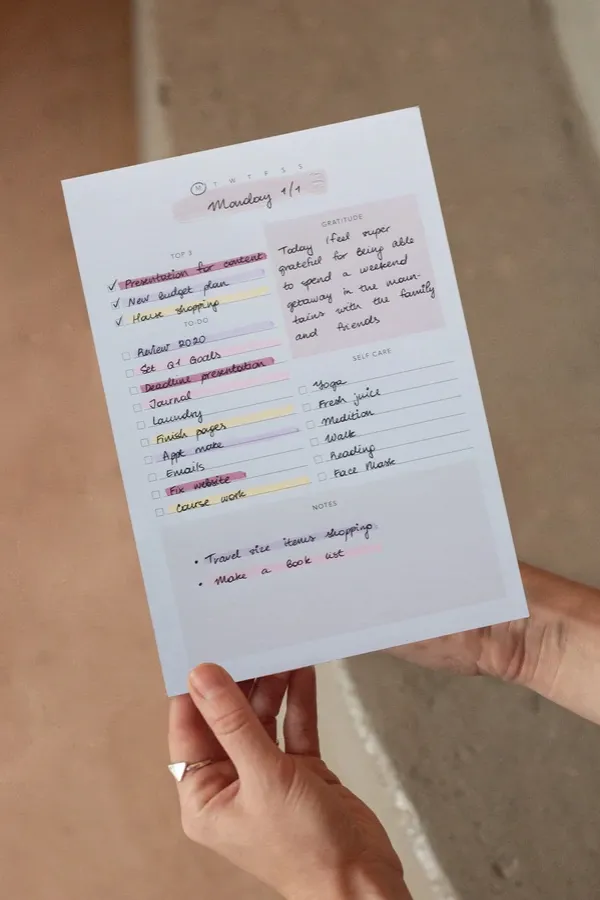 M T W T F S S
Monday 1/1
TOP 3
✓ Presentation for content
✓ New Budget plan
✓ House shopping
TO DO
Review 2020
Set Q1 Goals
Deadline presentation
Journal
Laundry
Finish pages
Appt make
Emails
Fix website
Course work
GRATITUDE
Today I feel super
grateful for Being able
to spend a weekend
getaway in the moun-
tains with the family
and friends
SELF CARE
Yoga
Fresh juice
Medition
Walk
Reading
Face Mask
NOTES
• Travel size items shopping
• Make a Book list